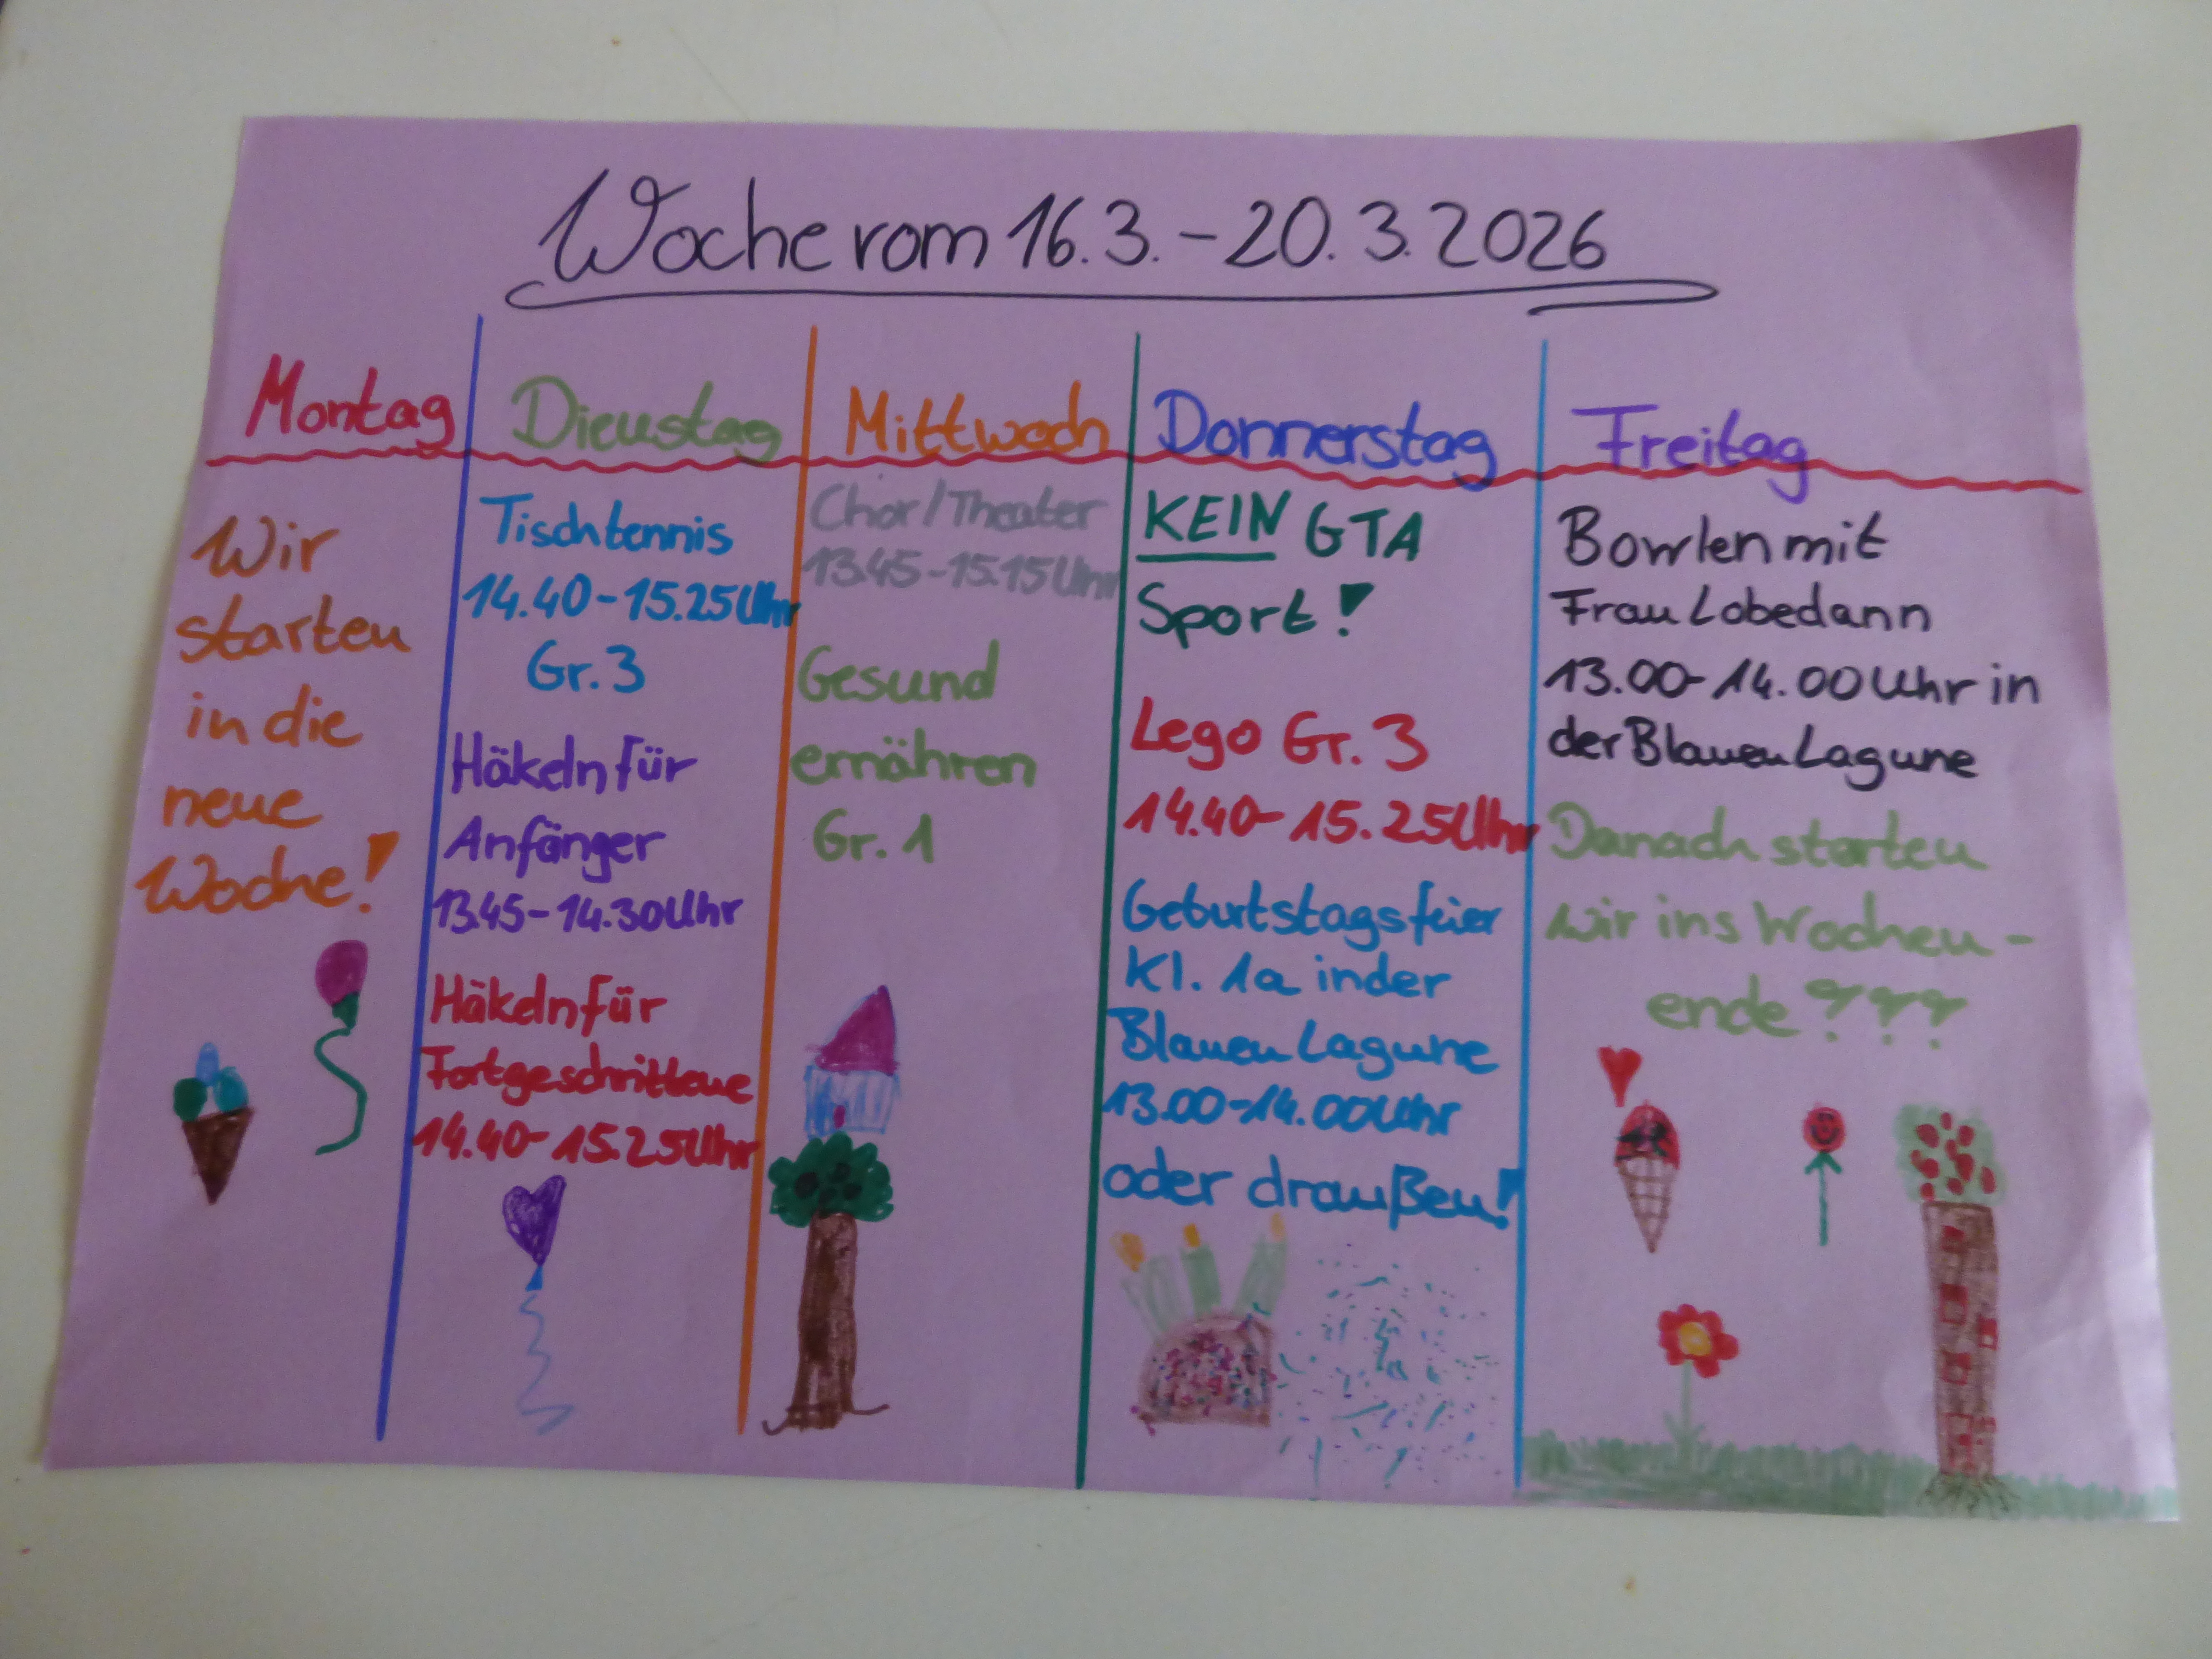 Woche vom 16.3.-20.3.2026
Montag
Wir
starten
in die
neue
Woche!
Dienstag
Tischtennis
14.40-15.25Uhr
Gr.3
Häkeln für
Anfänger
13.45-14.30Uhr
Häkeln für
Fortgeschrittene
14.40-15.25Uhr
Mittwoch
Chor/Theater
13.45-15.15Uhr
Gesund
ernähren
Gr.1
Donnerstag
KEIN GTA
Sport!
Lego Gr.3
14.40-15.25Uhr
Geburtstagsfeier
Kl. 1a in der
Blauen Lagune
13.00-14.00Uhr
oder draußen!
Freitag
Bowlen mit
Frau Lobedann
13.00-14.00Uhr in
der Blauen Lagune
Danach starten
wir ins Wochen-
ende???